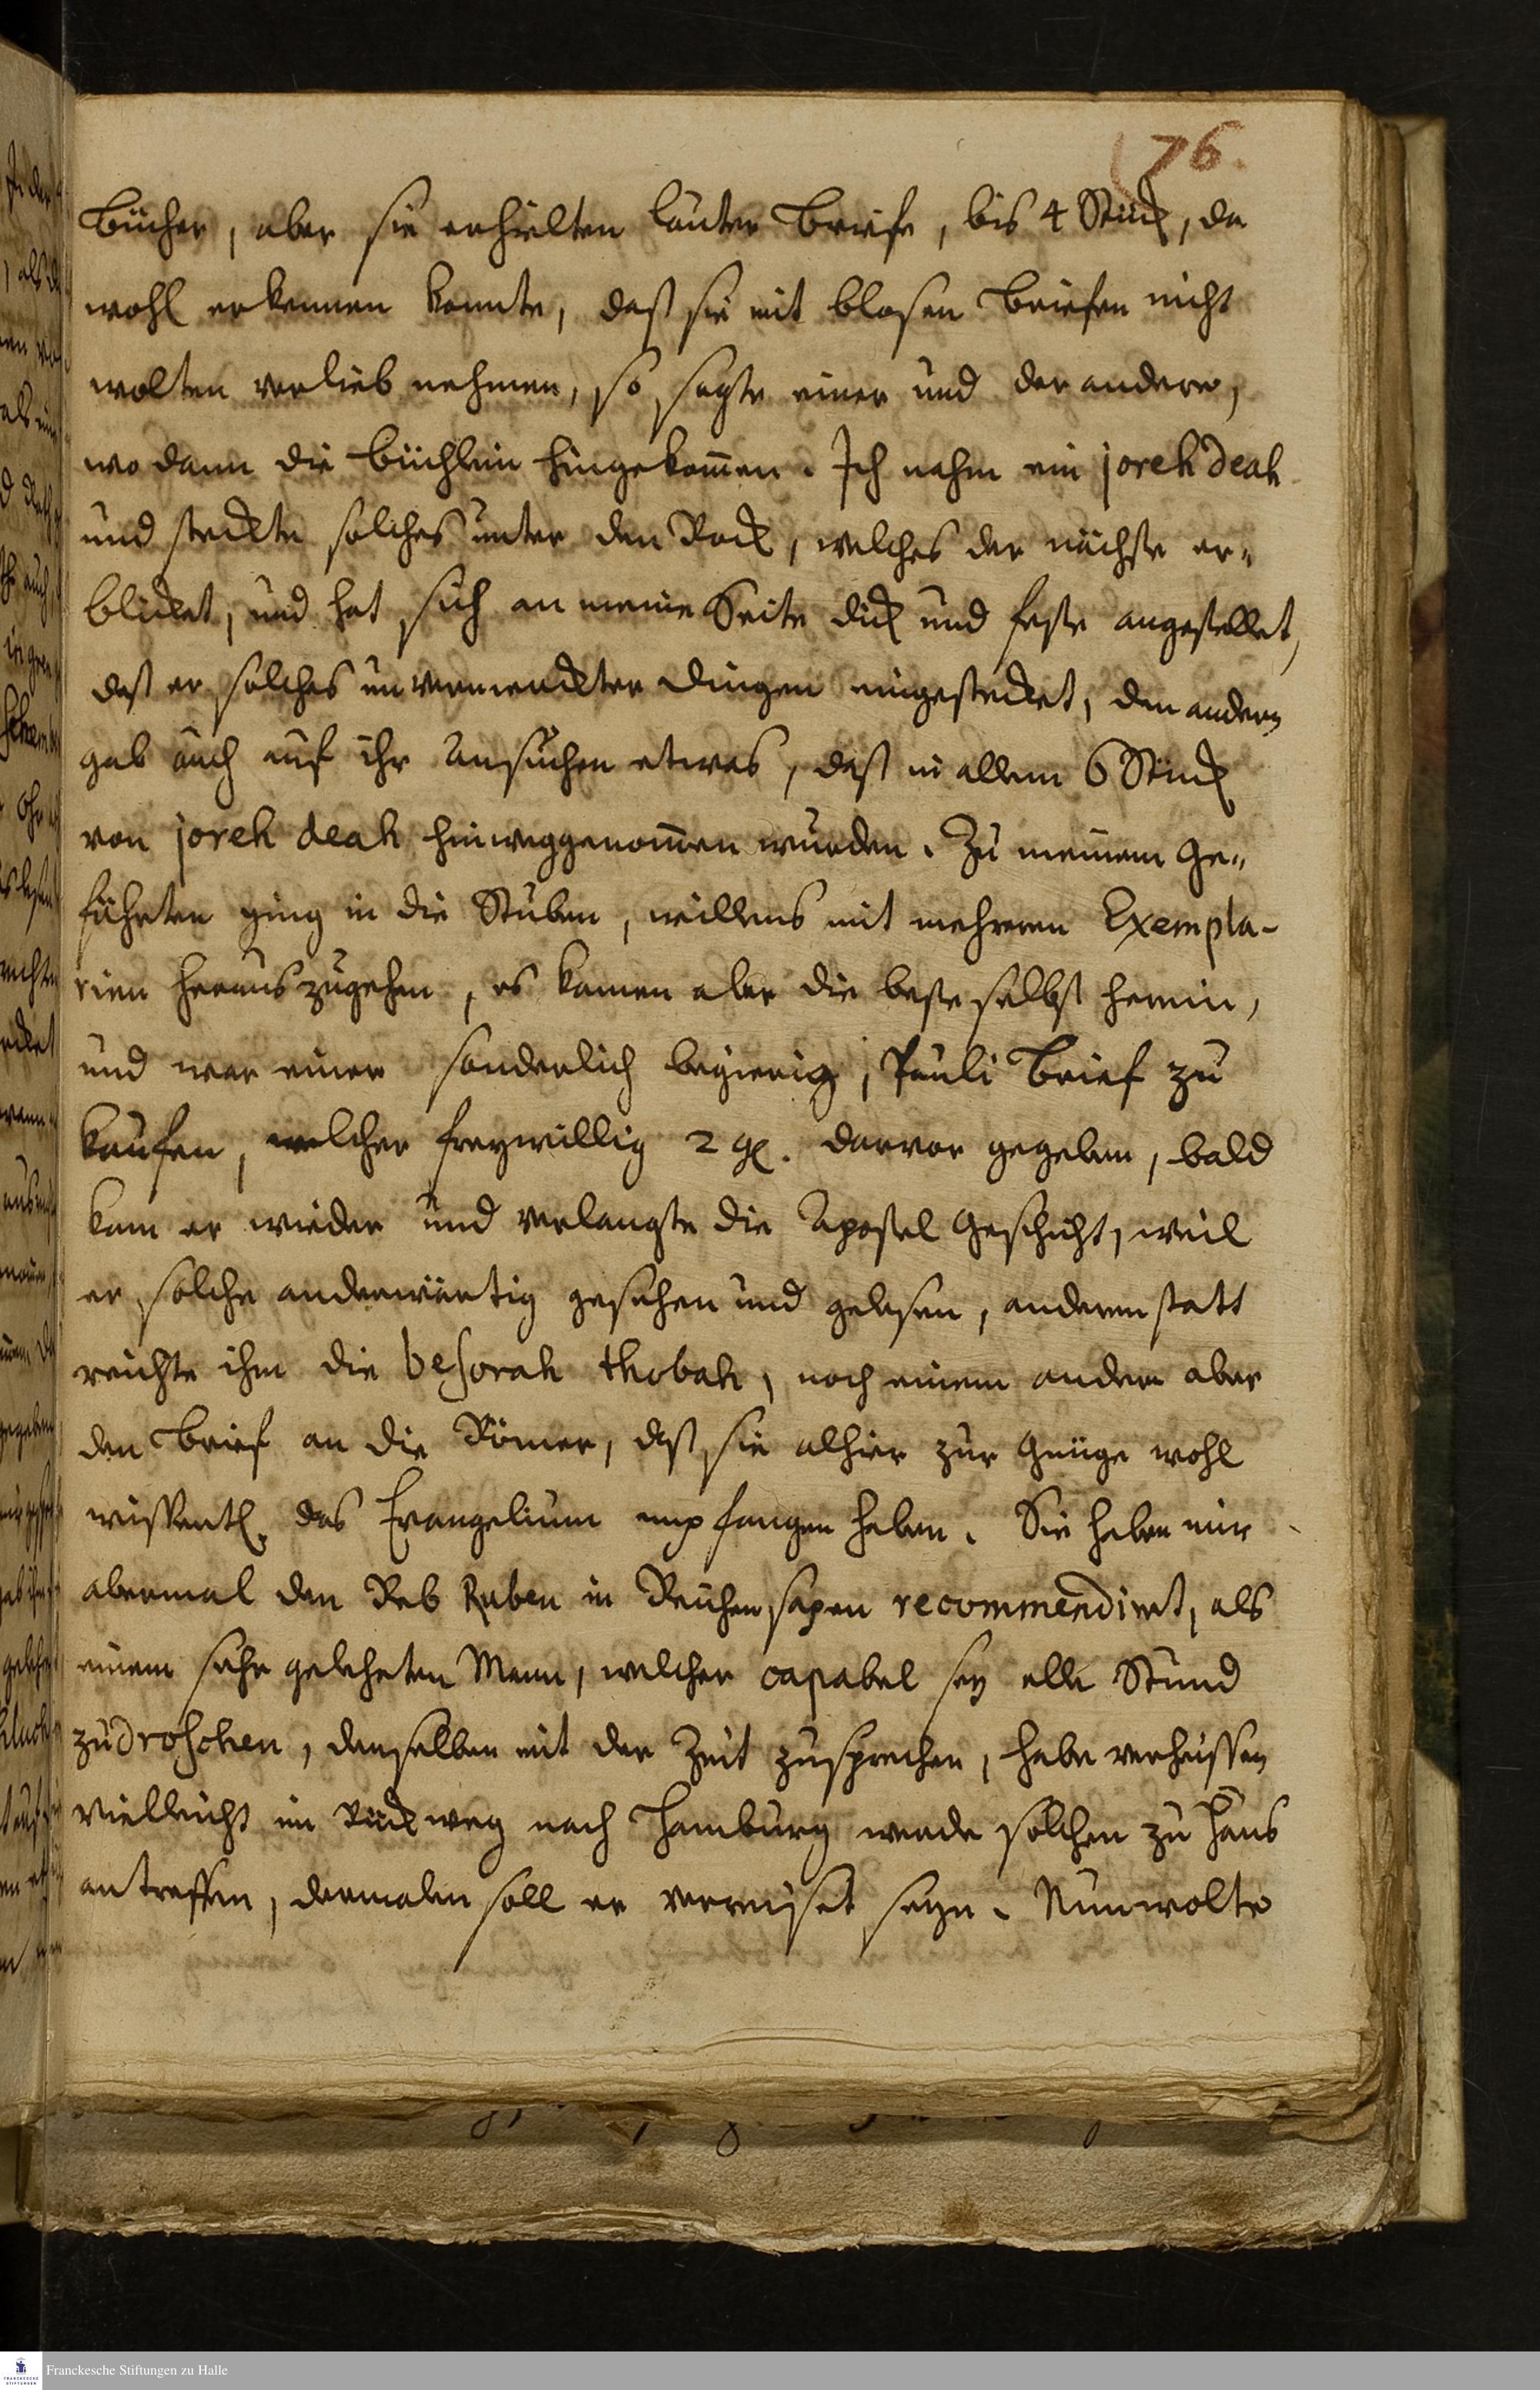 76.
Bücher, aber sie erhielten lauter Briefe, bis 4 Stück, da
wohl erkennen konnte, daß sie mit blosen Briefen nicht
wolten verlieb nehmen, so sagte einer und der andere,
wo dann die Büchlein hingekom̅en. Ich nahm ein joreh deah
und steckte solches unter den Rock, welches der nächste er-
blicket, und hat sich an meine Seite dick und feste angestellet,
daß er solches unvermerckter Dingen eingestecket, den andern
gab auch auf ihr Ansuchen etwas, daß in allem 6 Stück
von joreh deah hinweggenom̅en wurden. Zu meinem Ge-
fährten ging in die Stuben, willens mit mehreren Exempla-
rien herauszugehen, es kamen aber die beste selbst herein,
und war einer sonderlich begierig, Pauli Brief zu
kaufen, welcher freywillig 2 gl. darvor gegeben, bald
kam er wieder und verlangte die Apostel Geschicht, weil
er solche anderwärtig gesehen und gelesen, anderen statt
reichte ihm die besorah thobah, noch einem andern aber
den Brief an die Römer, daß sie alhier zur Gnüge wohl
wissentl. das Evangelium empfangen haben. Sie haben mir
abermal den Reb Ruben in Reichensaxen recommendirt, als
einem sehr gelehrten Mann, welcher capabel sey alle Stund
zu droschen, denselben mit der Zeit zusprechen, habe verheissen
vielleicht im Rückweg nach Hamburg werde solchen zu Haus
antreffen, dermalen soll er verreiset seyn. Nun wolte
Franckesche Stiftungen zu Halle